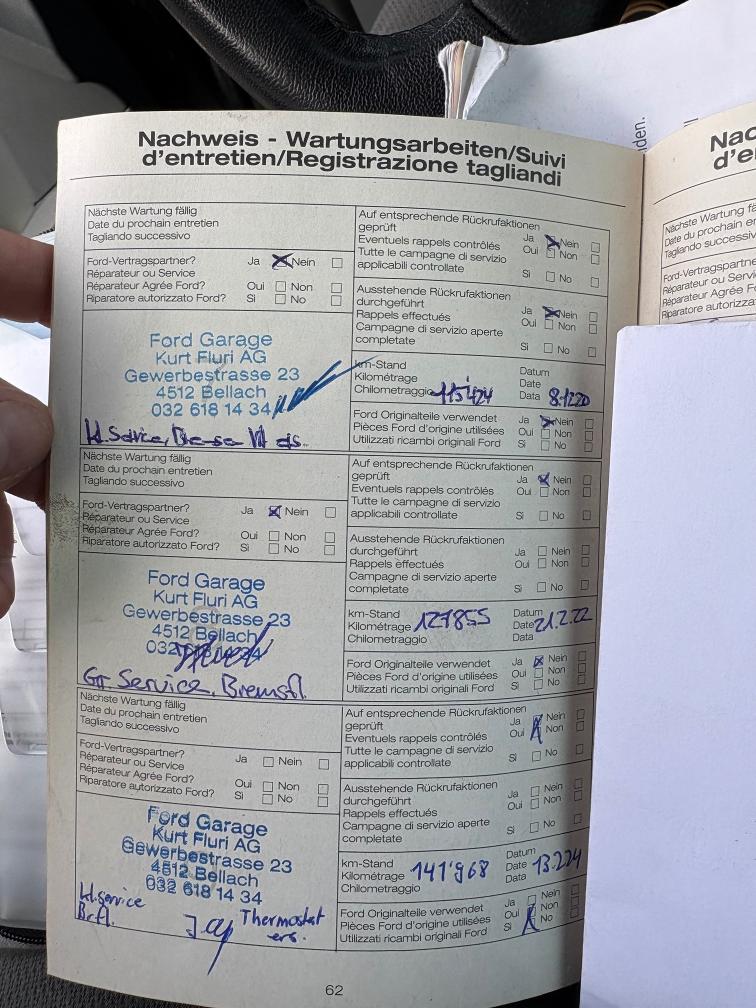 Nachweis - Wartungsarbeiten/Suivi
d'entretien/Registrazione tagliandi
Nächste Wartung fällig
Date du prochain entretien
Tagliando successivo
Ford-Vertragspartner? Ja Nein
Réparateur ou Service
Réparateur Agrée Ford? Oui Non
Riparatore autorizzato Ford? Si No
Ford Garage
Kurt Fluri AG
Gewerbestrasse 23
4512 Bellach
032 618 14 34
Kl. Service,
Auf entsprechende Rückrufaktionen
geprüft Ja Nein
Eventuels rappels contrôlés Oui Non
Tutte le campagne di servizio
applicabili controllate Si No
Ausstehende Rückrufaktionen
durchgeführt Ja Nein
Rappels effectués Oui Non
Campagne di servizio aperte
completate Si No
km-Stand Datum
Kilométrage Date
Chilometraggio 115424 Data 8.1220
Ford Originalteile verwendet Ja Nein
Pièces Ford d'origine utilisées Oui Non
Utilizzati ricambi originali Ford Si No
Nächste Wartung fällig
Date du prochain entretien
Tagliando successivo
Ford-Vertragspartner? Ja Nein
Réparateur ou Service
Réparateur Agrée Ford? Oui Non
Riparatore autorizzato Ford? Si No
Ford Garage
Kurt Fluri AG
Gewerbestrasse 23
4512 Bellach
Gr. Service, Bremsfl.
Auf entsprechende Rückrufaktionen
geprüft Ja Nein
Eventuels rappels contrôlés Oui Non
Tutte le campagne di servizio
applicabili controllate Si No
Ausstehende Rückrufaktionen
durchgeführt Ja Nein
Rappels effectués Oui Non
Campagne di servizio aperte
completate Si No
km-Stand Datum
Kilométrage 127855 Date 21.2.22
Chilometraggio Data
Ford Originalteile verwendet Ja Nein
Pièces Ford d'origine utilisées Oui Non
Utilizzati ricambi originali Ford Si No
Nächste Wartung fällig
Date du prochain entretien
Tagliando successivo
Ford-Vertragspartner? Ja Nein
Réparateur ou Service
Réparateur Agrée Ford? Oui Non
Riparatore autorizzato Ford? Si No
Ford Garage
Kurt Fluri AG
Gewerbestrasse 23
4512 Bellach
032 618 14 34
Kl. service
Thermostat
ers.
Auf entsprechende Rückrufaktionen
geprüft Ja Nein
Eventuels rappels contrôlés Oui Non
Tutte le campagne di servizio
applicabili controllate Si No
Ausstehende Rückrufaktionen
durchgeführt Ja Nein
Rappels effectués Oui Non
Campagne di servizio aperte
completate Si No
km-Stand Datum
Kilométrage 141'968 Date 13.2.24
Chilometraggio Data
Ford Originalteile verwendet Ja Nein
Pièces Ford d'origine utilisées Oui Non
Utilizzati ricambi originali Ford Si No
62